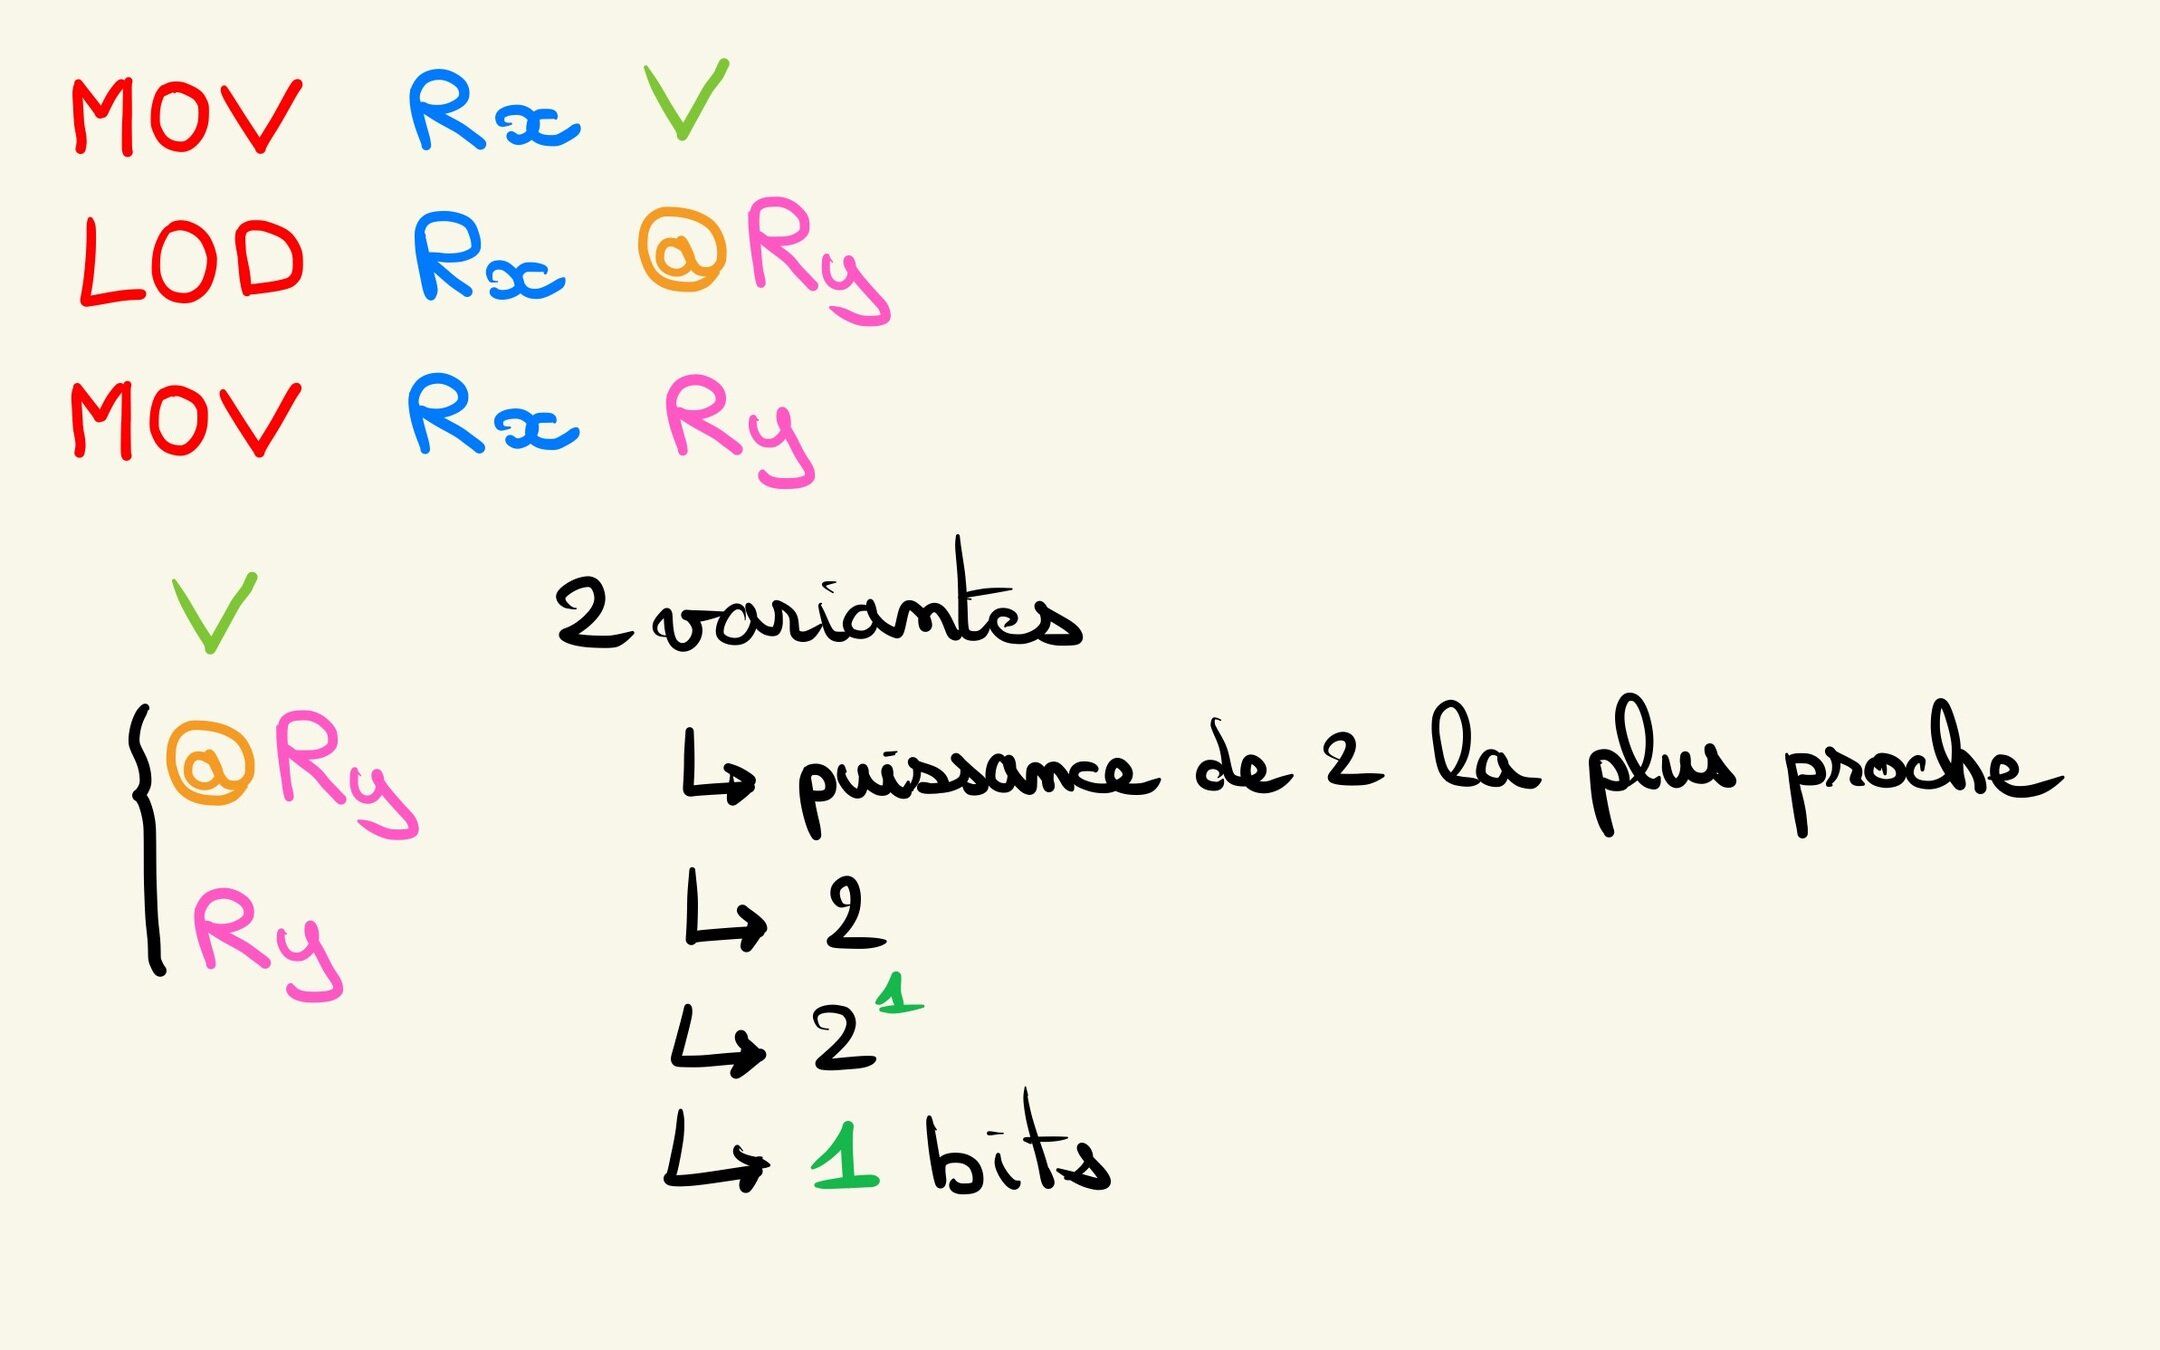 MOV Rx V
LOD Rx @Ry
MOV Rx Ry
V 2 variantes
@Ry ↳ puissance de 2 la plus proche
↳ 2
Ry
↳ 2¹
↳ 1 bits